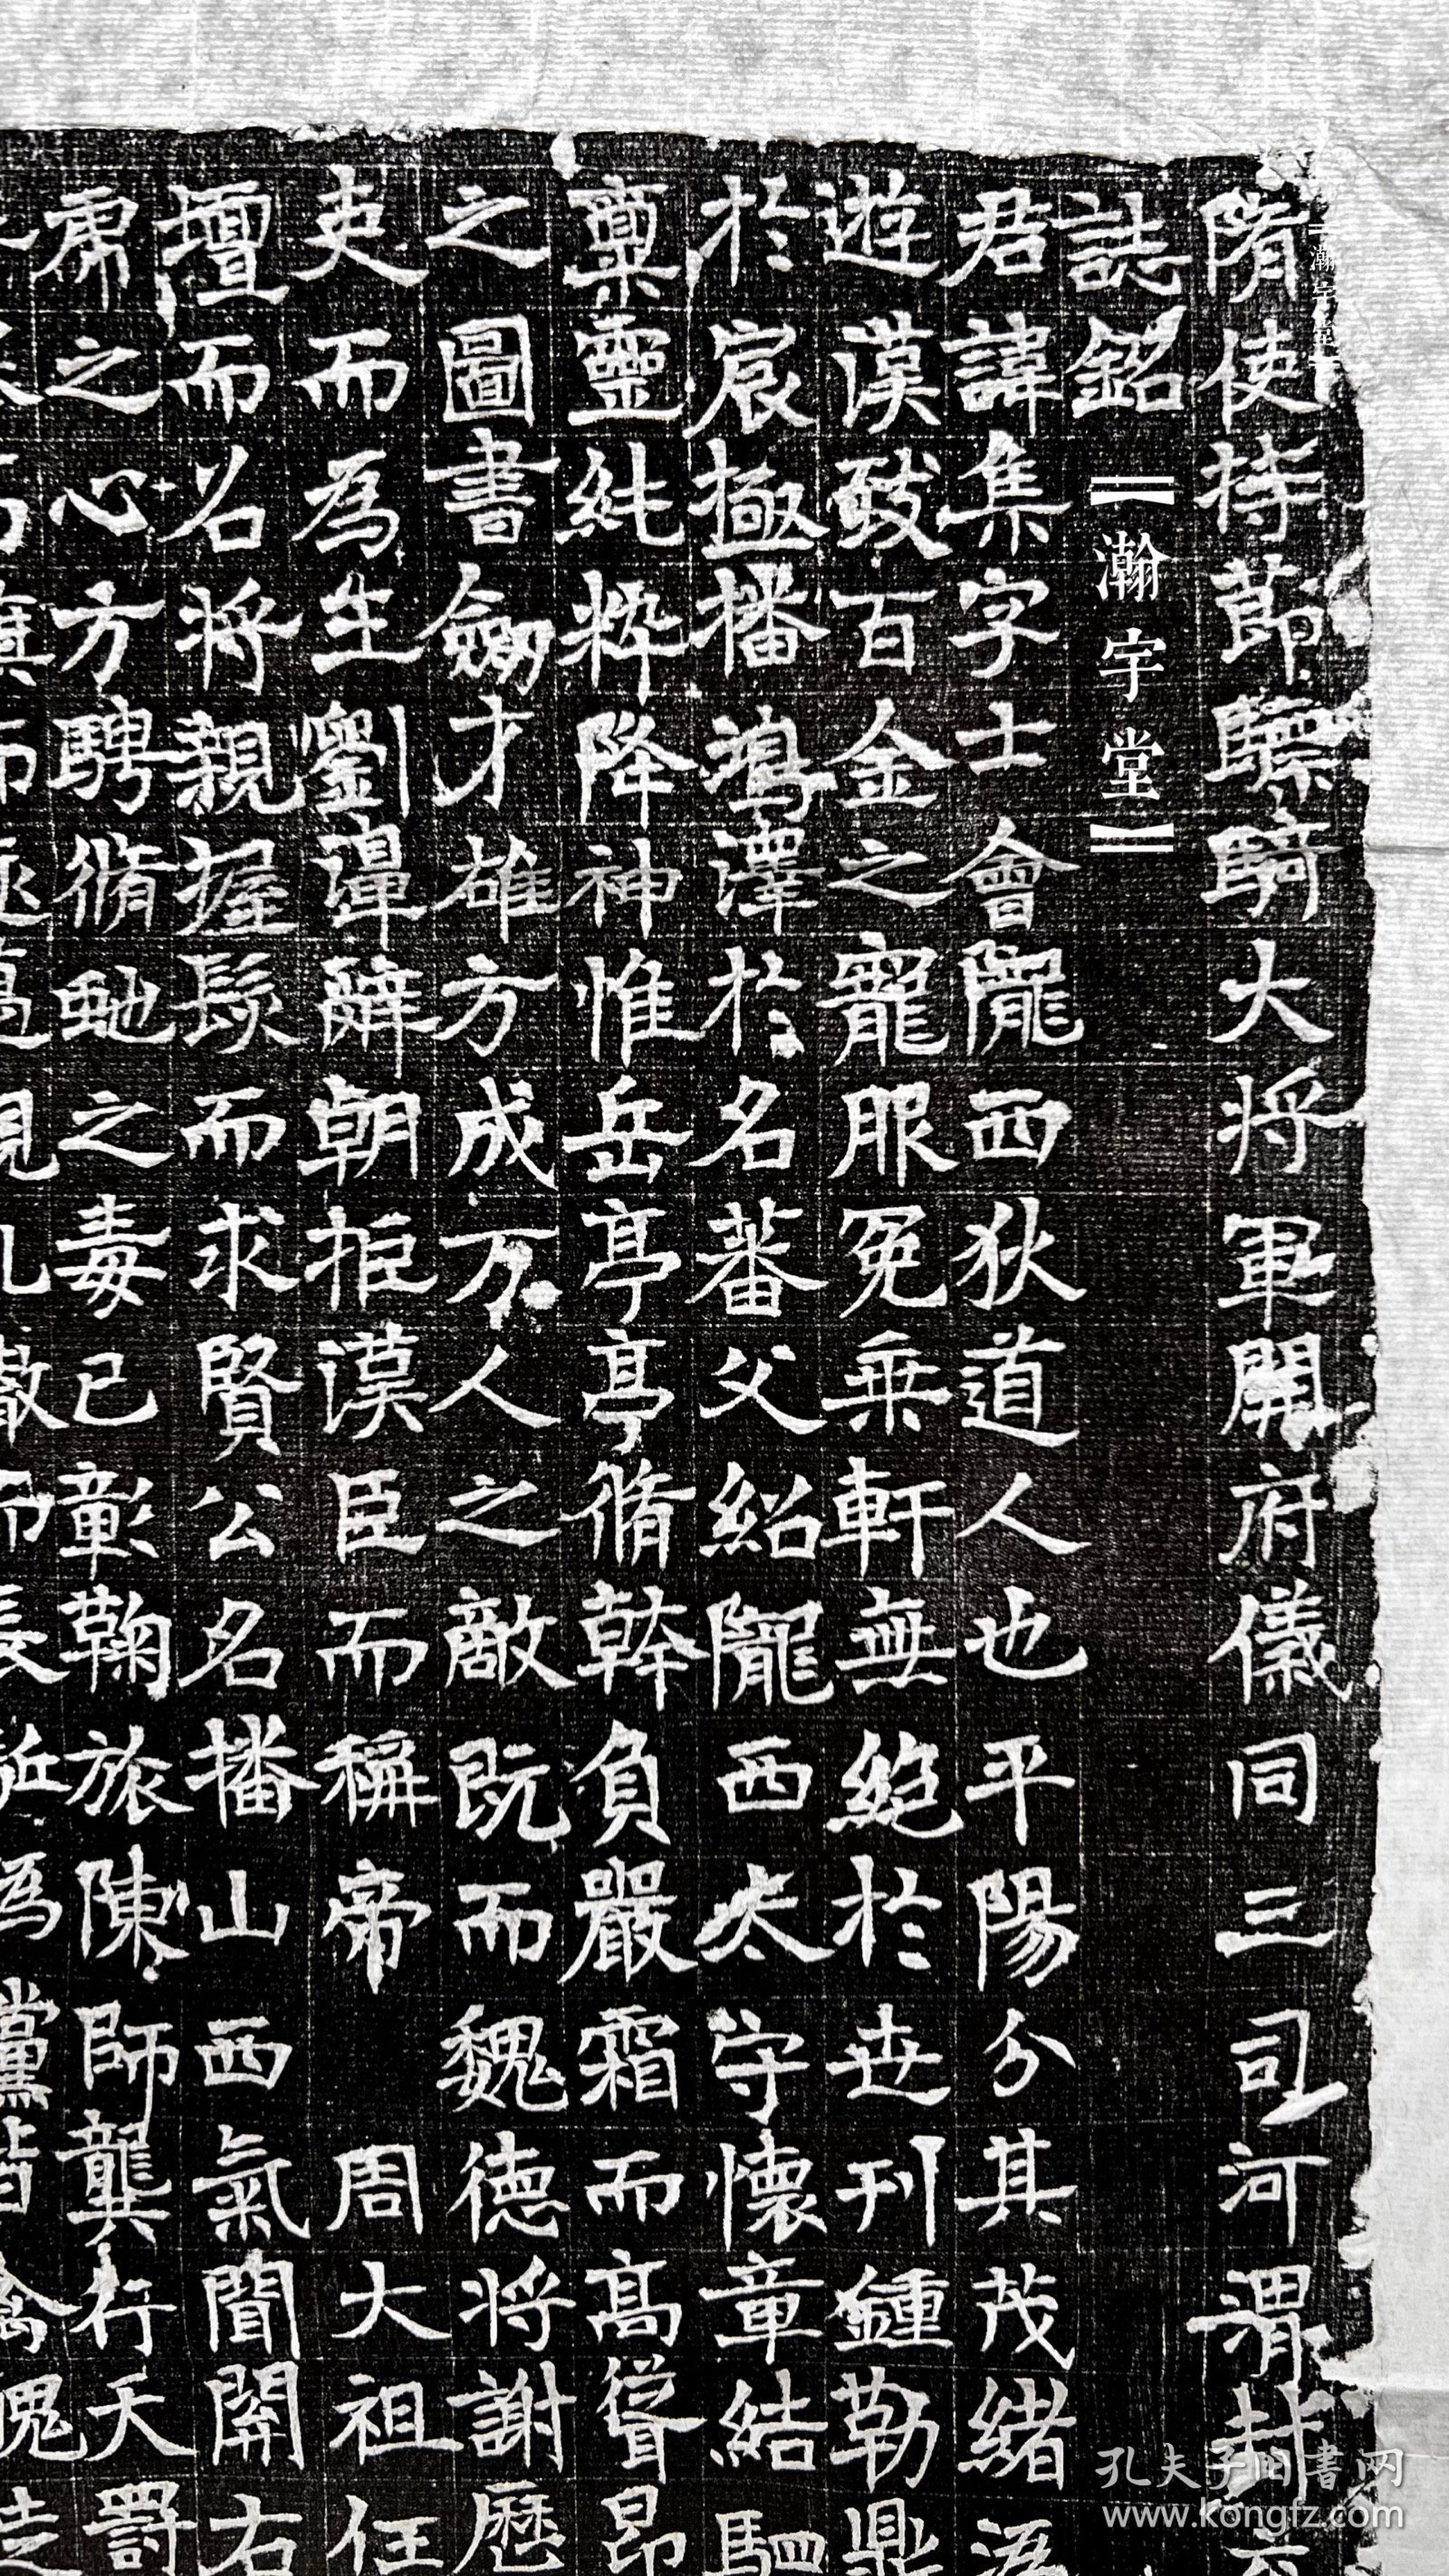 隋使持節驃騎大将軍開府儀同三司河渭
誌銘
君諱集字士會隴西狄道人也平陽分其茂緒
遊漢致百金之寵服冕乘軒無絶於世刊鍾勒鼎
於宸極播鴻澤於名蕃父紹隴西太守懷章結駟
稟靈純粹降神惟岳亭亭脩幹負嚴霜而高聳昂
之圖書劒才雄方成万人之敵既而魏德将謝歷
吏而為生劉譁辭朝拒漢臣而稱帝 周大祖任
壇而名将親握髮而求賢公名播山西氣聞關右
肅之心方騁脩虵之毒已彰鞠旅陳師龔行天罸
瀚宇堂
瀚宇堂
孔夫子旧書网
www.kongfz.com